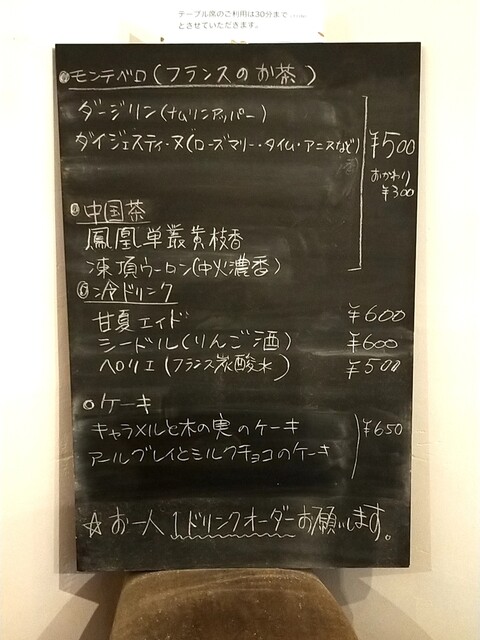 テーブル席のご利用は30分まで
とさせていただきます。
モンテベロ(フランスのお茶)
ダージリン(ナムリンアッパー)
ダイジェスティーヌ(ローズマリー・タイム・アニスなど)
¥500
おかわり
¥300
中国茶
鳳凰単叢黄枝香
凍頂ウーロン(中火濃香)
冷ドリンク
甘夏エイド ¥600
シードル(りんご酒) ¥600
ペリリエ(フランス炭酸水) ¥500
ケーキ
キャラメルと木の実のケーキ ¥650
アールグレイとミルクチョコのケーキ
☆お一人1ドリンクオーダーお願いします。